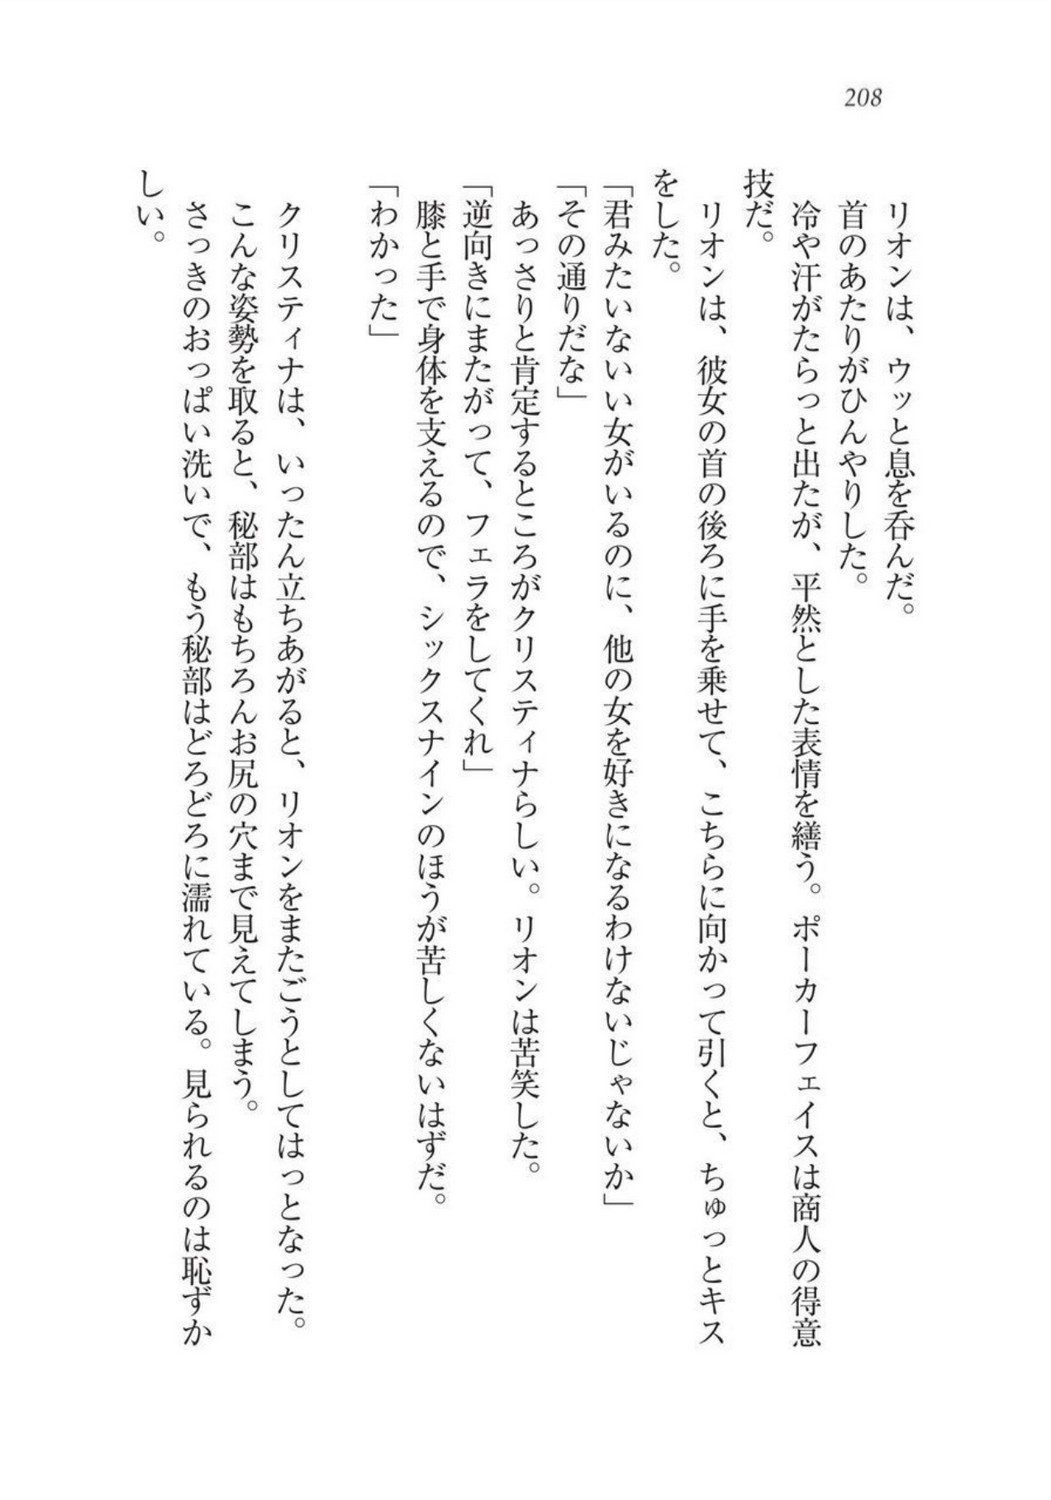 208
リオンは、ウッと息を呑んだ。
首のあたりがひんやりした。
冷や汗がたらっと出たが、平然とした表情を繕う。ポーカーフェイスは商人の得意
技だ。
リオンは、彼女の首の後ろに手を乗せて、こちらに向かって引くと、ちゅっとキス
をした。
「君みたいないい女がいるのに、他の女を好きになるわけないじゃないか」
「その通りだな」
あっさりと肯定するところがクリスティナらしい。リオンは苦笑した。
「逆向きにまたがって、フェラをしてくれ」
膝と手で身体を支えるので、シックスナインのほうが苦しくないはずだ。
「わかった」
クリスティナは、いったん立ちあがると、リオンをまたごうとしてはっとなった。
こんな姿勢を取ると、秘部はもちろんお尻の穴まで見えてしまう。
さっきのおっぱい洗いで、もう秘部はどろどろに濡れている。見られるのは恥ずか
しい。